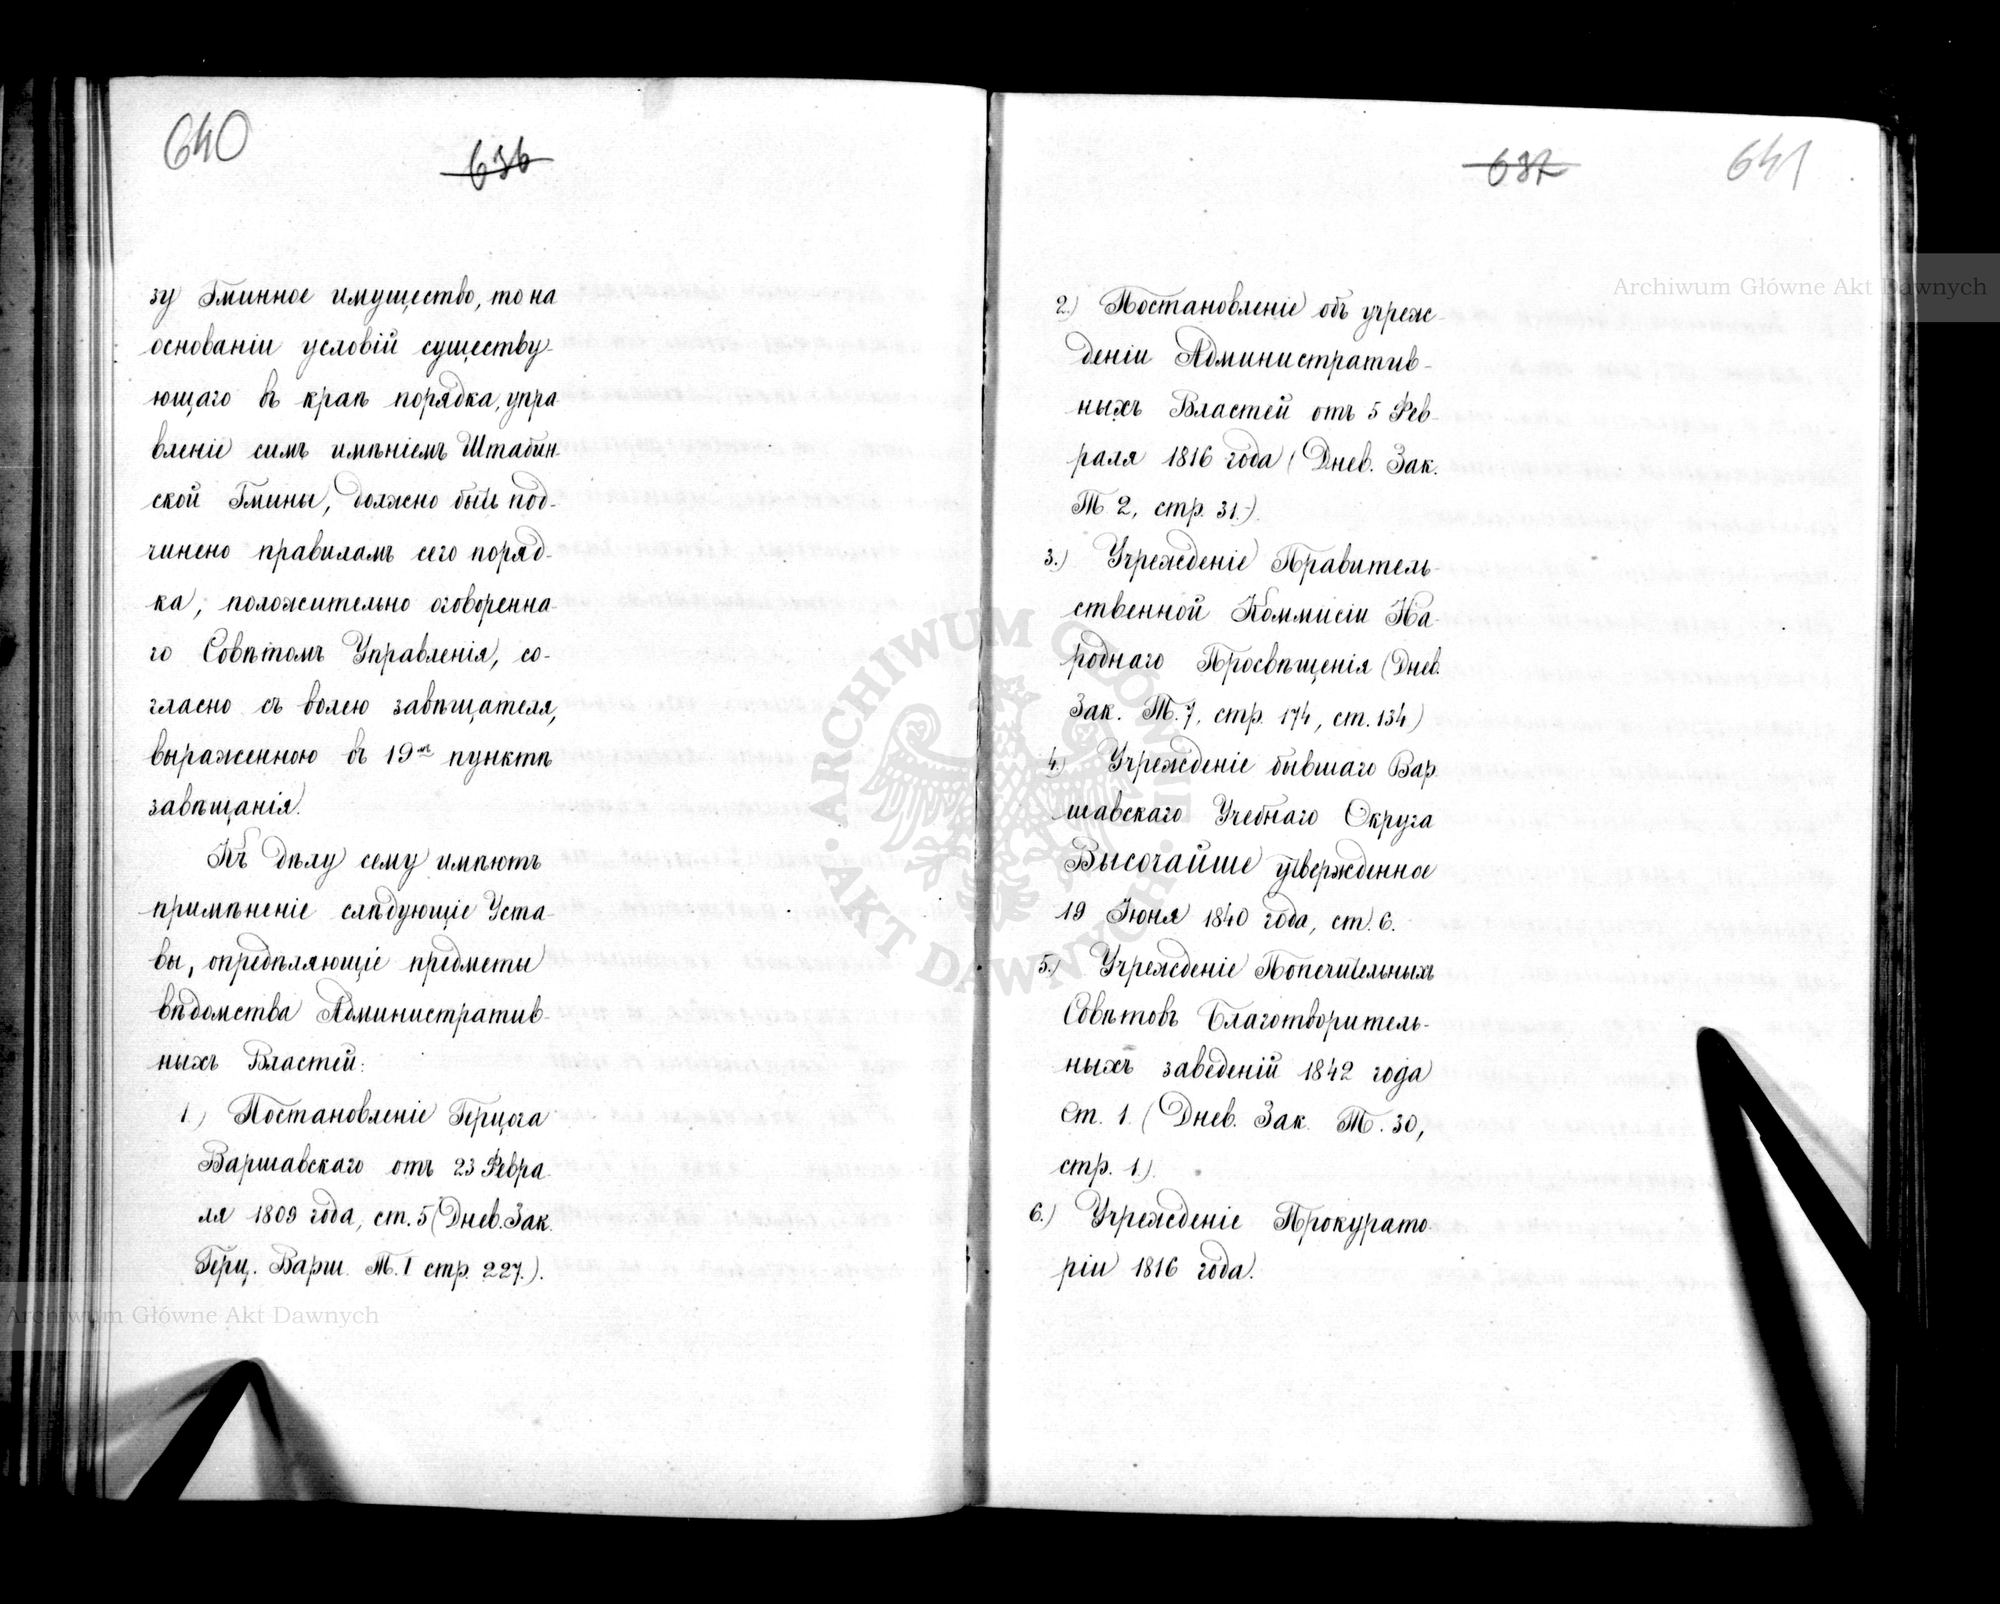 640
636
зу Гминное имущество, то на
основаніи условій существу-
ющаго въ краѣ порядка, упра
вленіе симъ имѣніемъ Штабин-
ской Гмины, должно быть под-
чинено правиламъ сего поряд-
ка, положительно оговоренна-
го Совѣтомъ Управленія, со-
гласно съ волею завѣщателя,
выраженною въ 19мъ пунктѣ
завѣщанія.
Къ дѣлу сему имѣютъ
примѣненіе слѣдующіе Уста-
вы, опредѣляющіе предметы
вѣдомства Административ-
ныхъ Властей:
1.) Постановленіе Герцога
Варшавскаго отъ 23 Февра-
ля 1809 года, ст. 5 (Днев. Зак.
Герц. Варш. Т. I стр. 227.).
637
641
2.) Постановленіе объ учреж-
деніи Административ-
ныхъ Властей отъ 5 Фев-
раля 1816 года (Днев. Зак.
Т 2, стр. 31.).
3.) Учрежденіе Правитель-
ственной Коммисіи На-
роднаго Просвѣщенія (Днев.
Зак. Т. 7, стр. 174, ст. 134)
4.) Учрежденіе бывшаго Вар-
шавскаго Учебнаго Округа
Высочайше утвержденное
19 Іюня 1840 года, ст. 6.
5.) Учрежденіе Попечительныхъ
Совѣтовъ Благотворитель-
ныхъ заведеній 1842 года
Ст. 1. (Днев. Зак. Т. 30,
стр. 1.).
6.) Учрежденіе Прокурато-
ріи 1816 года.
Archiwum Główne Akt Dawnych
Archiwum Główne Akt Dawnych
ARCHIWUM GŁÓWNE
AKT DAWNYCH